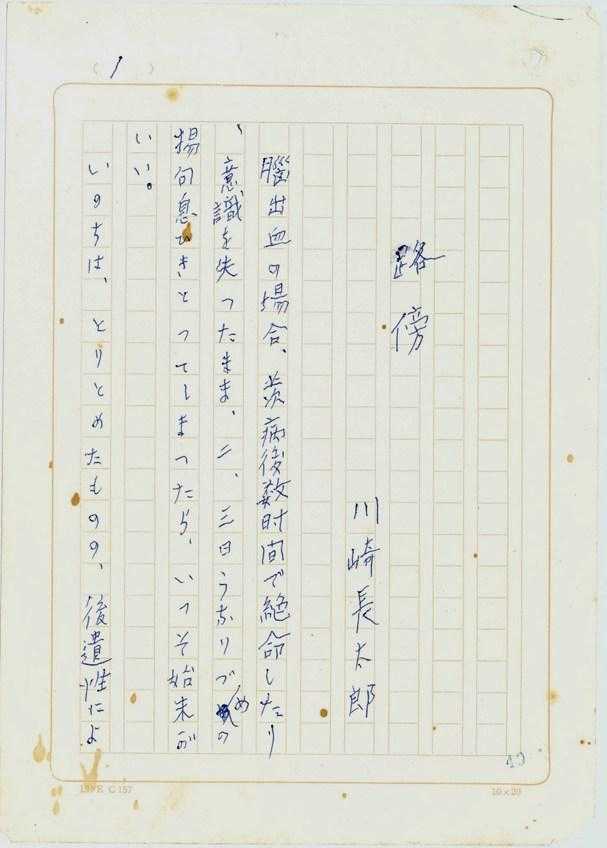 1
路傍
川崎長太郎
脳出血の場合、発病後数时间で絶命したり
、意識を失つたまま、二、三日うなりづめの
揚句息ひきとつてしまつたら、いつそ始末が
いい。
いのちは、とりとめたものの、後遺性によ
10×20